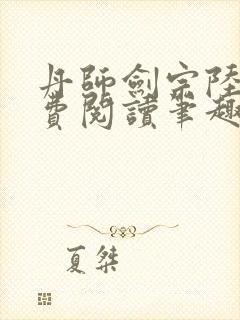 丹師劍宗陸
費閱讀筆趣
夏桀